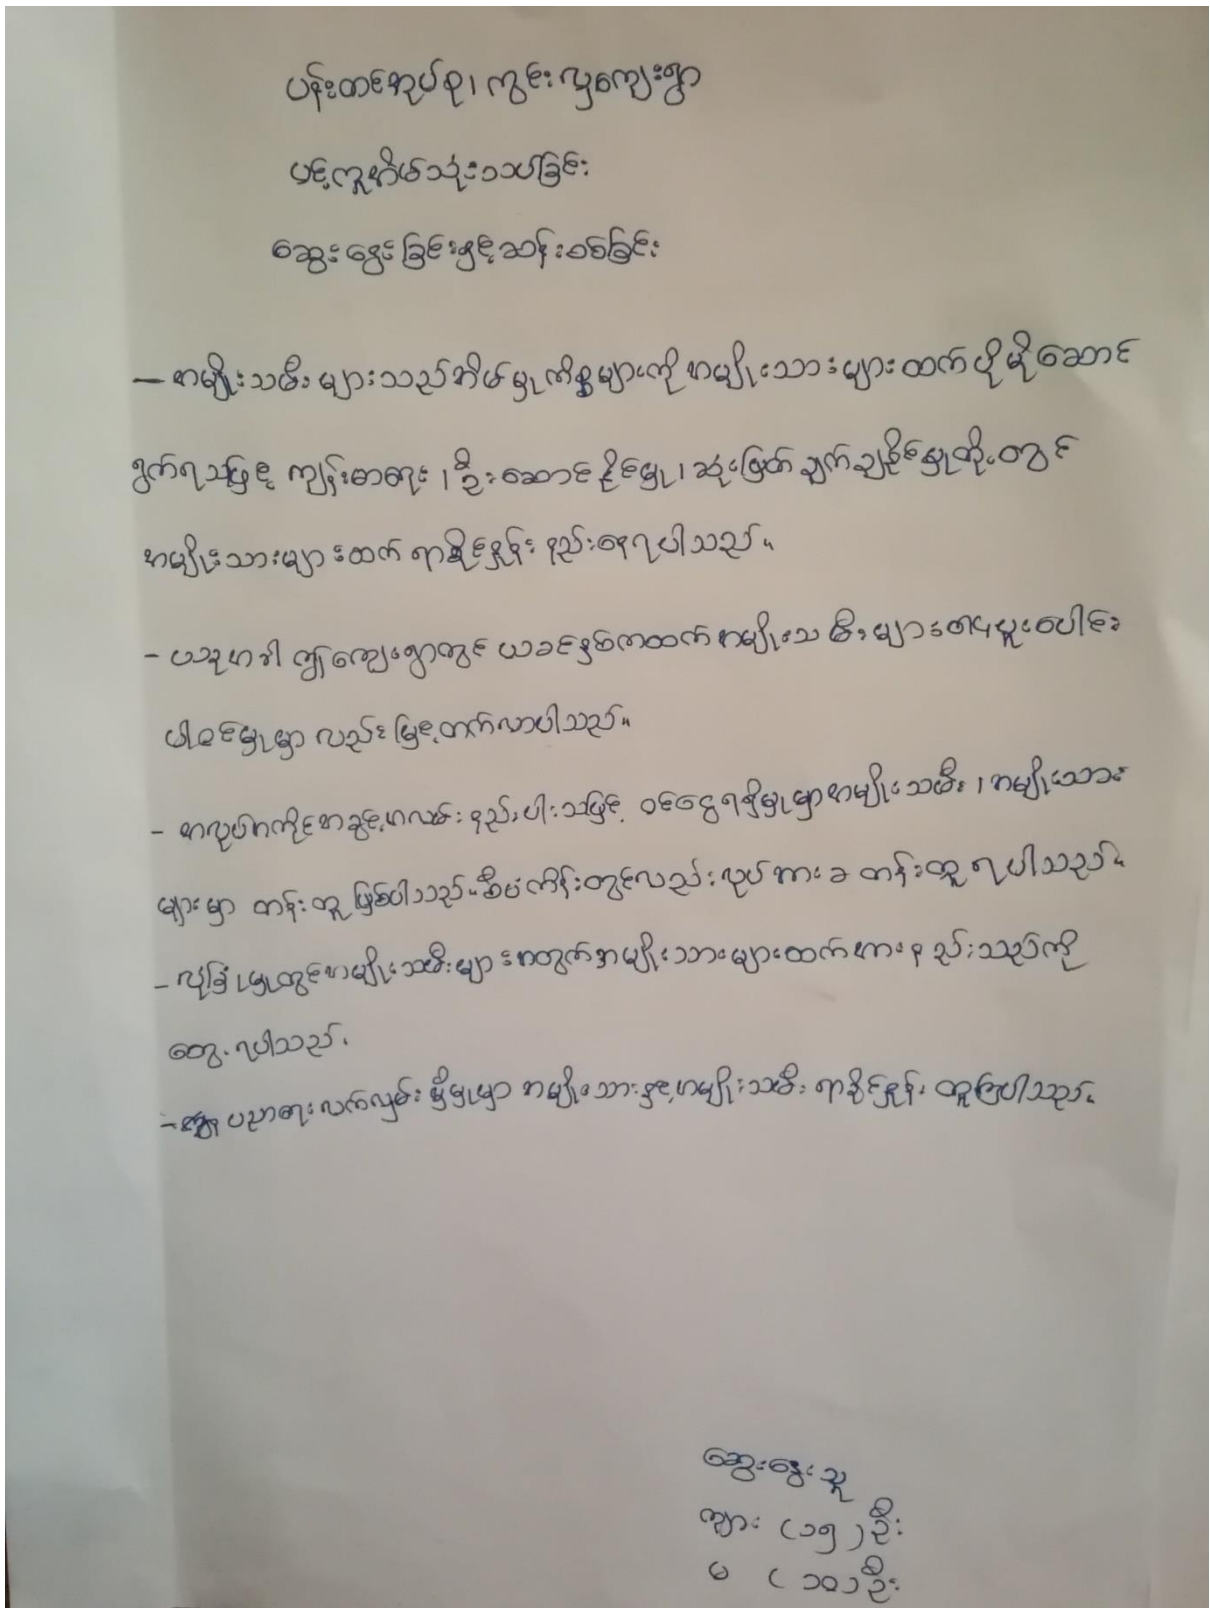 ပန်းတင်အုပ်စု၊ ကွင်းလှကျေးရွာ
ပင့်ကူအိမ်သုံးသပ်ခြင်း
ဆွေးနွေးခြင်းနှင့်ဆန်းစစ်ခြင်း
— အမျိုးသမီးများသည်အိမ်မှုကိစ္စများကိုအမျိုးသားများထက်ပိုမိုဆောင်
ရွက်ရသဖြင့် ကျန်းမာရေး၊ ဦးဆောင်နိုင်မှု၊ ဆုံးဖြတ်ချက်ချနိုင်မှုတို့တွင်
အမျိုးသားများထက် ရာခိုင်နှုန်း နည်းနေရပါသည်။
- ယခုအခါ ကျေးရွာတွင် ယခင်နှစ်ကထက်အမျိုးသမီးများစုပူးပေါင်း
ပါဝင်မှုမှာ လည်းမြင့်တက်လာပါသည်။
- အလုပ်အကိုင်အခွင့်အလမ်းနည်းပါးသဖြင့် ဝင်ငွေရရှိမှုမှာအမျိုးသမီး၊ အမျိုးသား
များမှာ တန်းတူဖြစ်ပါသည်။ စီမံကိန်းတွင်လည်းလုပ်အားခ တန်းတူရပါသည်။
- လုံခြုံမှုတွင်အမျိုးသမီးများအတွက်အမျိုးသားများထက်အားနည်းသည်ကို
တွေ့ရပါသည်။
- ပညာရေးလက်လှမ်းမှီမှုမှာ အမျိုးသားနှင့်အမျိုးသမီး ရာခိုင်နှုန်း တူကြပါသည်။
ဆွေးနွေးသူ
ကျား (၁၅)ဦး
မ (၁၀)ဦး